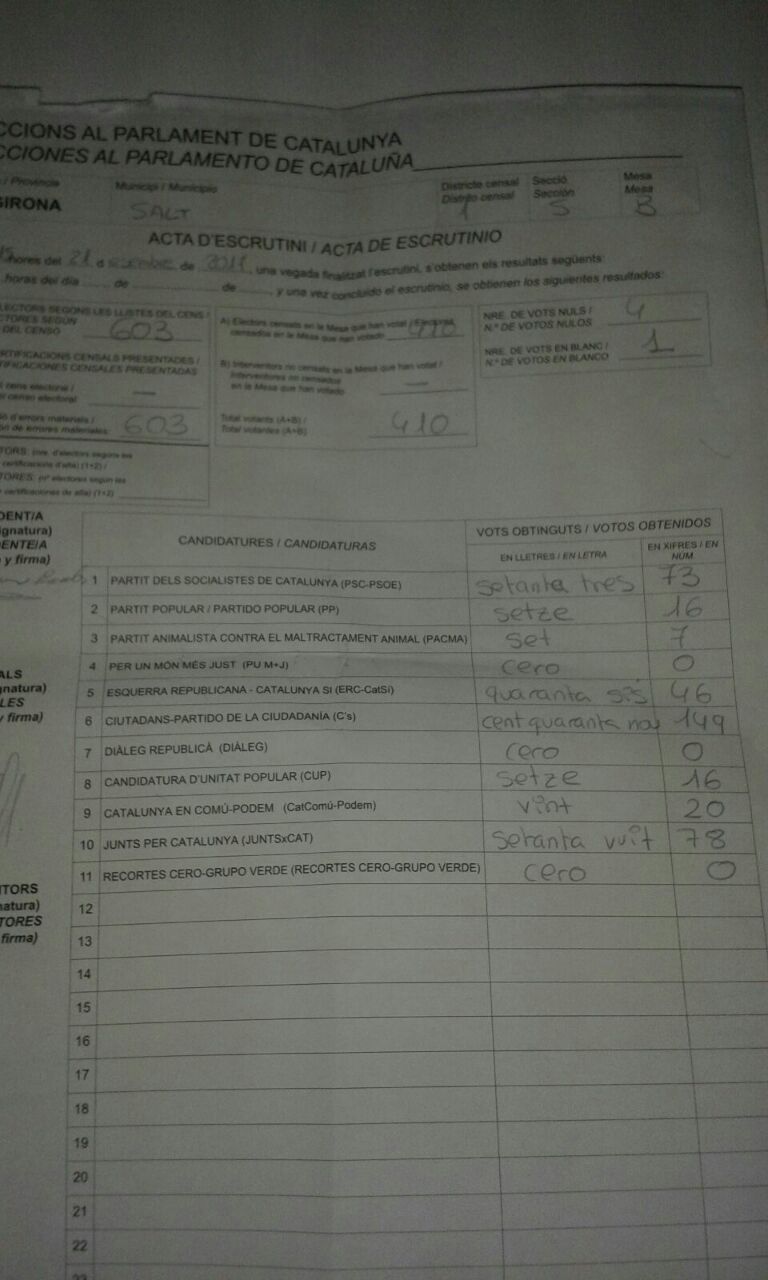 CCIONS AL PARLAMENT DE CATALUNYA
CCIONES AL PARLAMENTO DE CATALUÑA
/ Provincia Municipi / Municipio Districte censal Secció Mesa
Distrito censal Sección Mesa
GIRONA SALT 1 5 B
ACTA D'ESCRUTINI / ACTA DE ESCRUTINIO
hores del 21 d de, una vegada finalitzat l'escrutini, s'obtenen els resultats següents:
horas del día de de, y una vez concluido el escrutinio, se obtienen los siguientes resultados:
LECTORS SEGONS LES LLISTES DEL CENS /
CTORES SEGÚN
DEL CENSO 603
RTIFICACIONS CENSALS PRESENTADES /
TIFICACIONES CENSALES PRESENTADAS
l cens electoral /
l censo electoral —
ó d'errors materials /
ón de errores materiales: 603
TORS: (nre. d'electors segons les
certificacions d'alta) (1+2) /
TORES: (nº electores según las
certificaciones de alta) (1+2)
A) Electors censats en la Mesa que han votat / Electores
censados en la Mesa que han votado 410
B) Interventors no censats en la Mesa que han votat /
Interventores no censados
en la Mesa que han votado —
Total votants (A+B) /
Total votantes (A+B) 410
NRE. DE VOTS NULS /
N.º DE VOTOS NULOS 4
NRE. DE VOTS EN BLANC /
N.º DE VOTOS EN BLANCO 1
DENT/A
ignatura)
DENTE/A
y firma)
ALS
natura)
LES
y firma)
ITORS
natura)
TORES
firma)
CANDIDATURES / CANDIDATURAS VOTS OBTINGUTS / VOTOS OBTENIDOS
EN LLETRES / EN LETRA EN XIFRES / EN NÚM
1 PARTIT DELS SOCIALISTES DE CATALUNYA (PSC-PSOE) setanta tres 73
2 PARTIT POPULAR / PARTIDO POPULAR (PP) setze 16
3 PARTIT ANIMALISTA CONTRA EL MALTRACTAMENT ANIMAL (PACMA) set 7
4 PER UN MÓN MÉS JUST (PU M+J) cero 0
5 ESQUERRA REPUBLICANA - CATALUNYA SÍ (ERC-CatSí) quaranta sis 46
6 CIUTADANS-PARTIDO DE LA CIUDADANÍA (C's) cent quaranta nou 149
7 DIÀLEG REPUBLICÀ (DIÀLEG) cero 0
8 CANDIDATURA D'UNITAT POPULAR (CUP) setze 16
9 CATALUNYA EN COMÚ-PODEM (CatComú-Podem) vint 20
10 JUNTS PER CATALUNYA (JUNTSxCAT) setanta vuit 78
11 RECORTES CERO-GRUPO VERDE (RECORTES CERO-GRUPO VERDE) cero 0
12
13
14
15
16
17
18
19
20
21
22
23